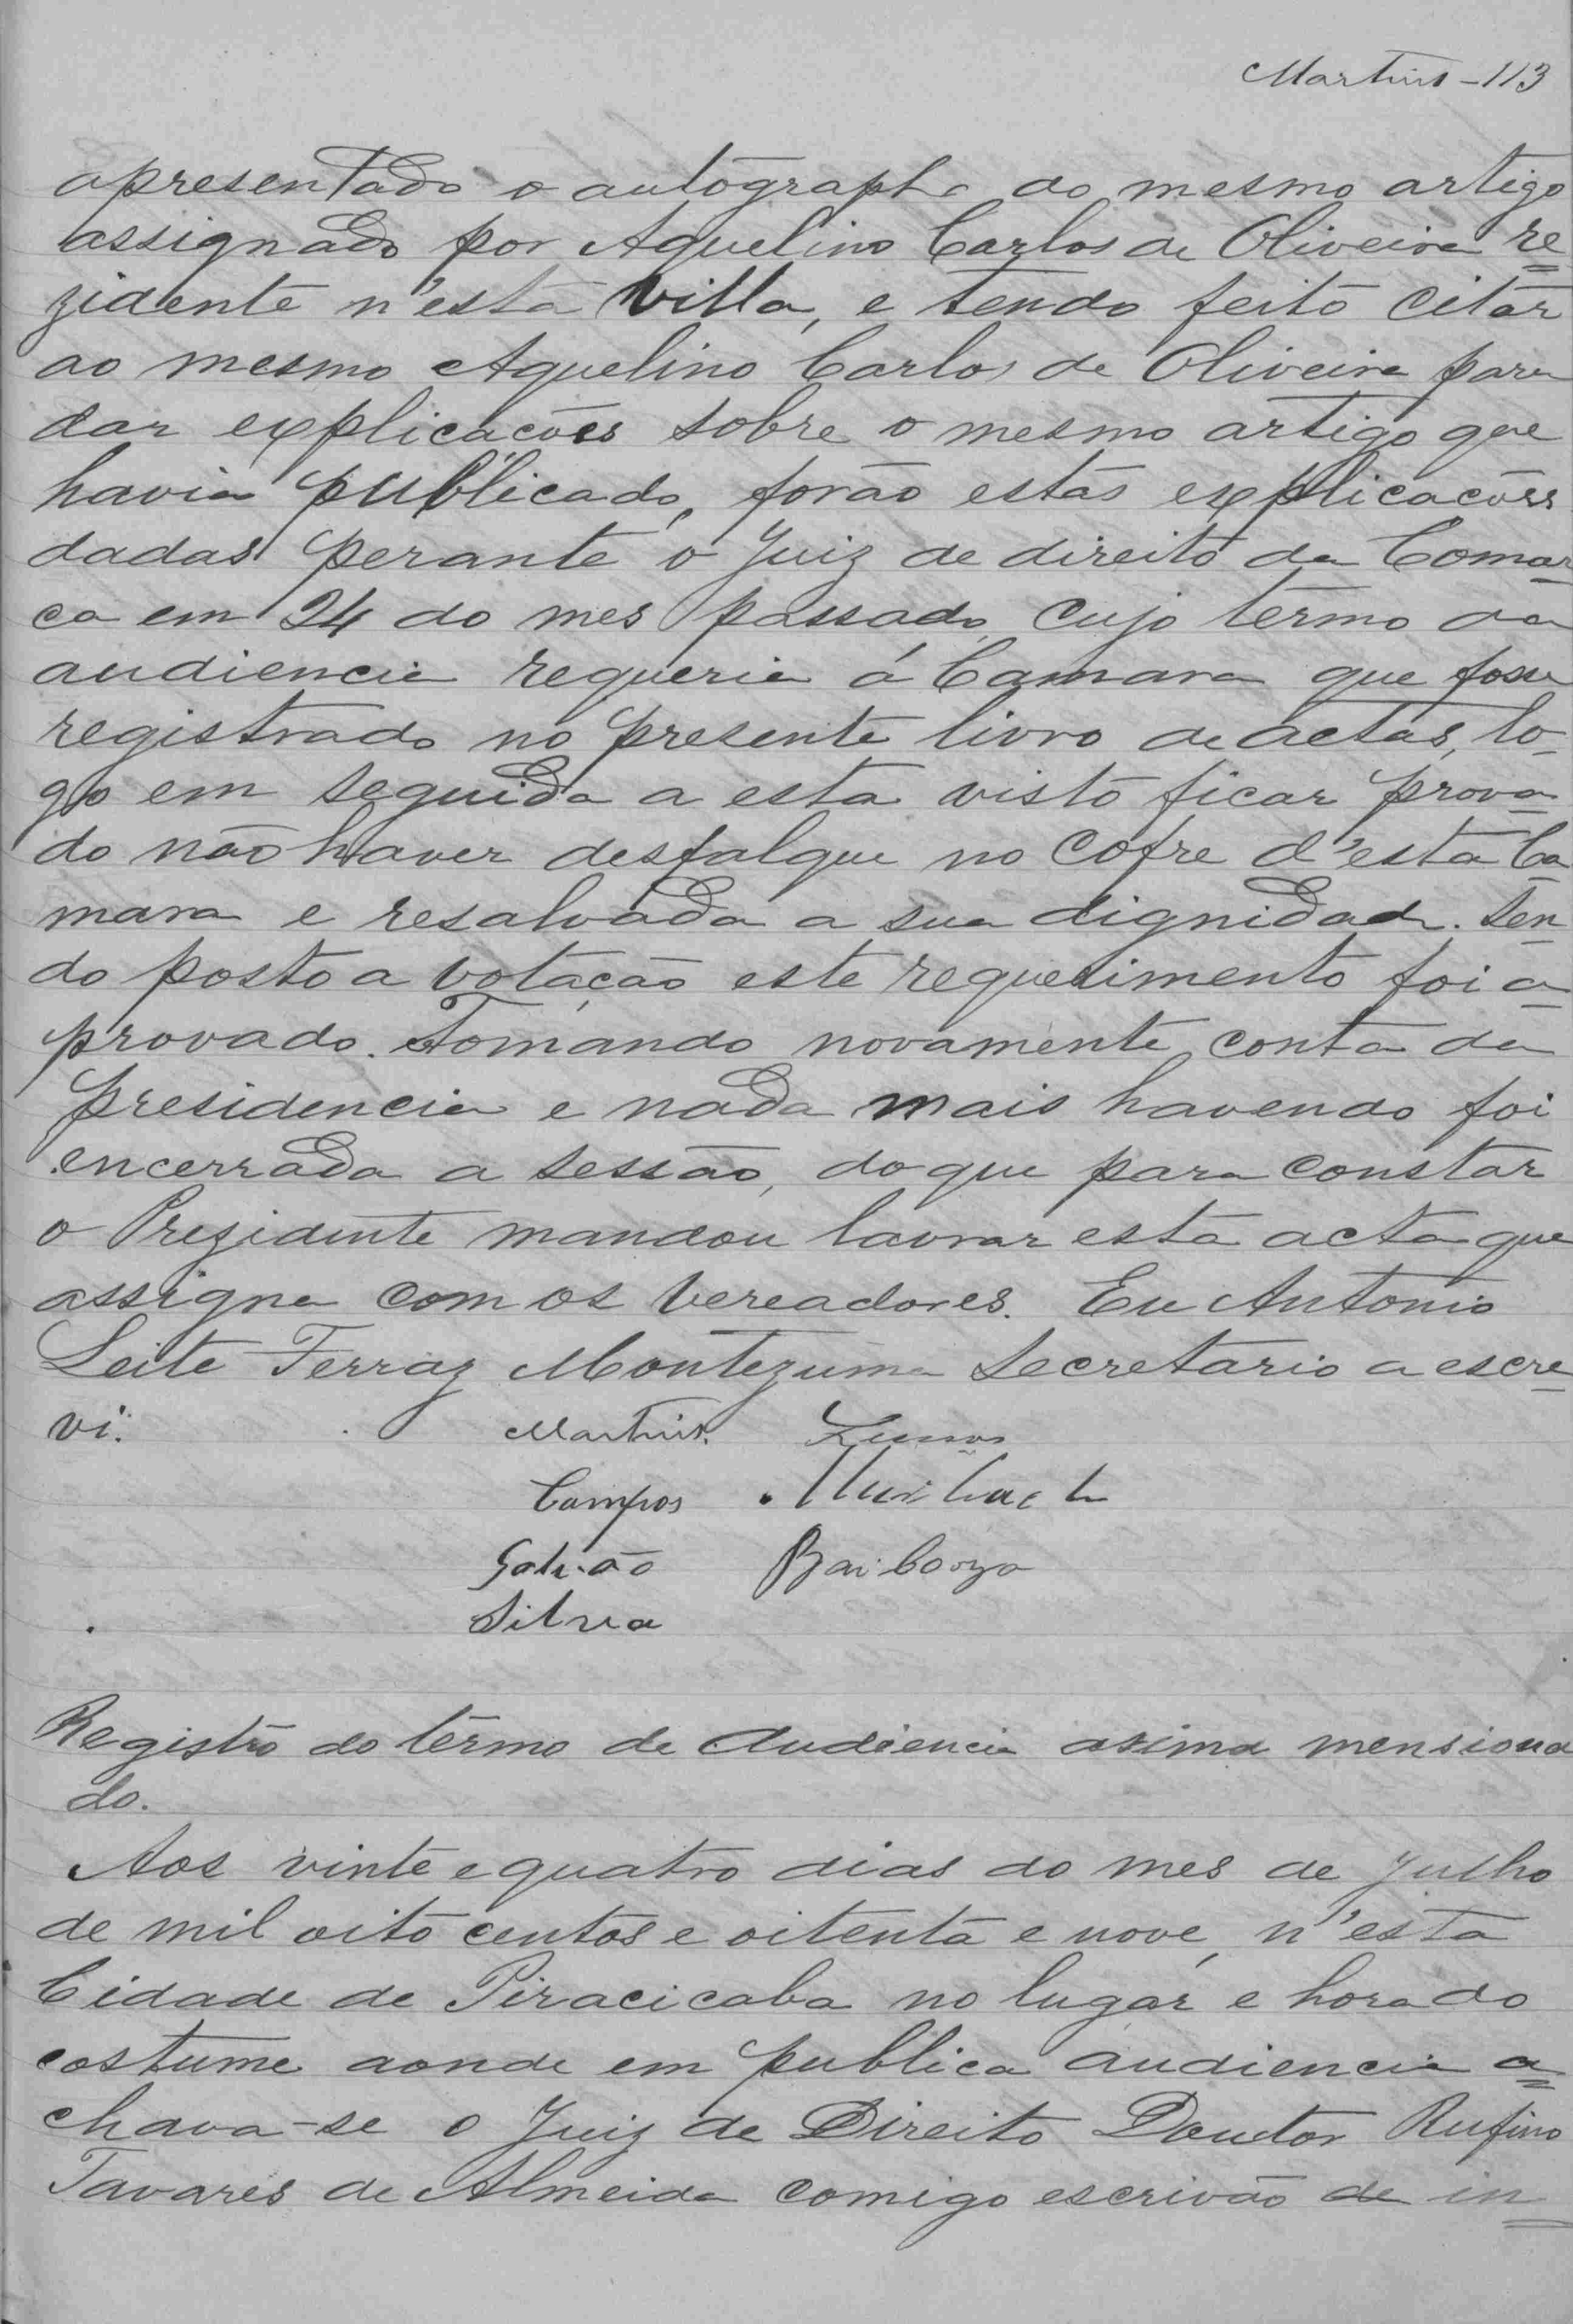 Martins - 113
apresentado o autographo do mesmo artigo
assignado por Aquelino Carlos de Oliveira re=
zidente n'esta Villa, e tendo feito citar
ao mesmo Aquelino Carlos de Oliveira para
dar explicações sobre o mesmo artigo que
havia publicado, forão estas explicacões
dadas perante o Juiz de direito da Comar=
ca em 24 do mes passado, cujo termo da
audiencia requeria á Camara que fosse
registrado no presente livro de actas, lo-
go em seguida a esta visto ficar prova=
do não haver desfalque no Cofre d'esta Ca
mara e resalvada a sua dignidade. Sen=
do posto a votação este requerimento foi a=
provado. Tomando novamente conta da
presidencia e nada mais havendo foi
encerrada a sessão, do que para constar
o Prezidente mandou lavrar esta acta que
assigna com os Vereadores. Eu Antonio
Leite Ferraz Montezuma Secretario a escre=
vi.
Martins. Lemos
Campos
Galvão Barboza
Silva
Registro do termo de Audiencia asima mensiona
do.
Aos vinte e quatro dias do mes de Julho
de mil oito centos e oitenta e nove, n'esta
Cidade de Piracicaba no lugar e hora do
costume aonde em publica audiencia a=
chava-se o Juiz de Direito Doutor Rufino
Tavares de Almeida comigo escrivão de in=